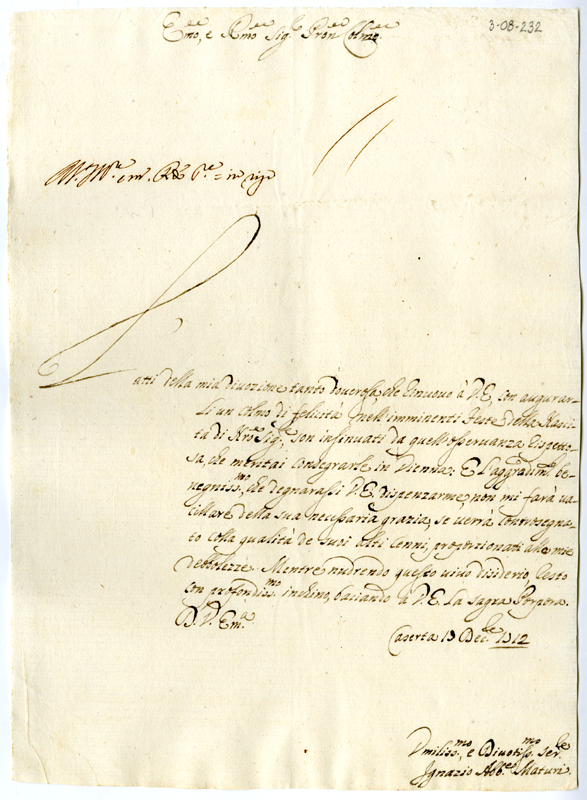 3-08-232
Emo, e Rmo Sigre Pron Colmo
atti della mia divozione tanto doverosa, che rinuovo à V.E. con augurar-
Li un colmo di felicità nell'imminenti feste della Nasci-
ta di Nro Sigre, son insinuati da quell'osservanza rispetto-
sa, che meritai consegrarle in Vienna: E l'aggradimto be-
negnissmo, che degnarassi V.E. dispenzarme, non mi farà va-
cillare della sua necessaria grazia, se verrà contrasegna-
to colla qualità de suoi alti cenni, proporzionati alle mie
debbolezze. Mentre nudrendo questo vivo disiderio, resto
con profondissmo inchino, baciando à V.E. La Sagra Porpora.
D. V. Ema
Caserta 13 Dec.bre 1712
Vmilissmo, e Divotissmo Serre
Ignazio Abbte Maturi.